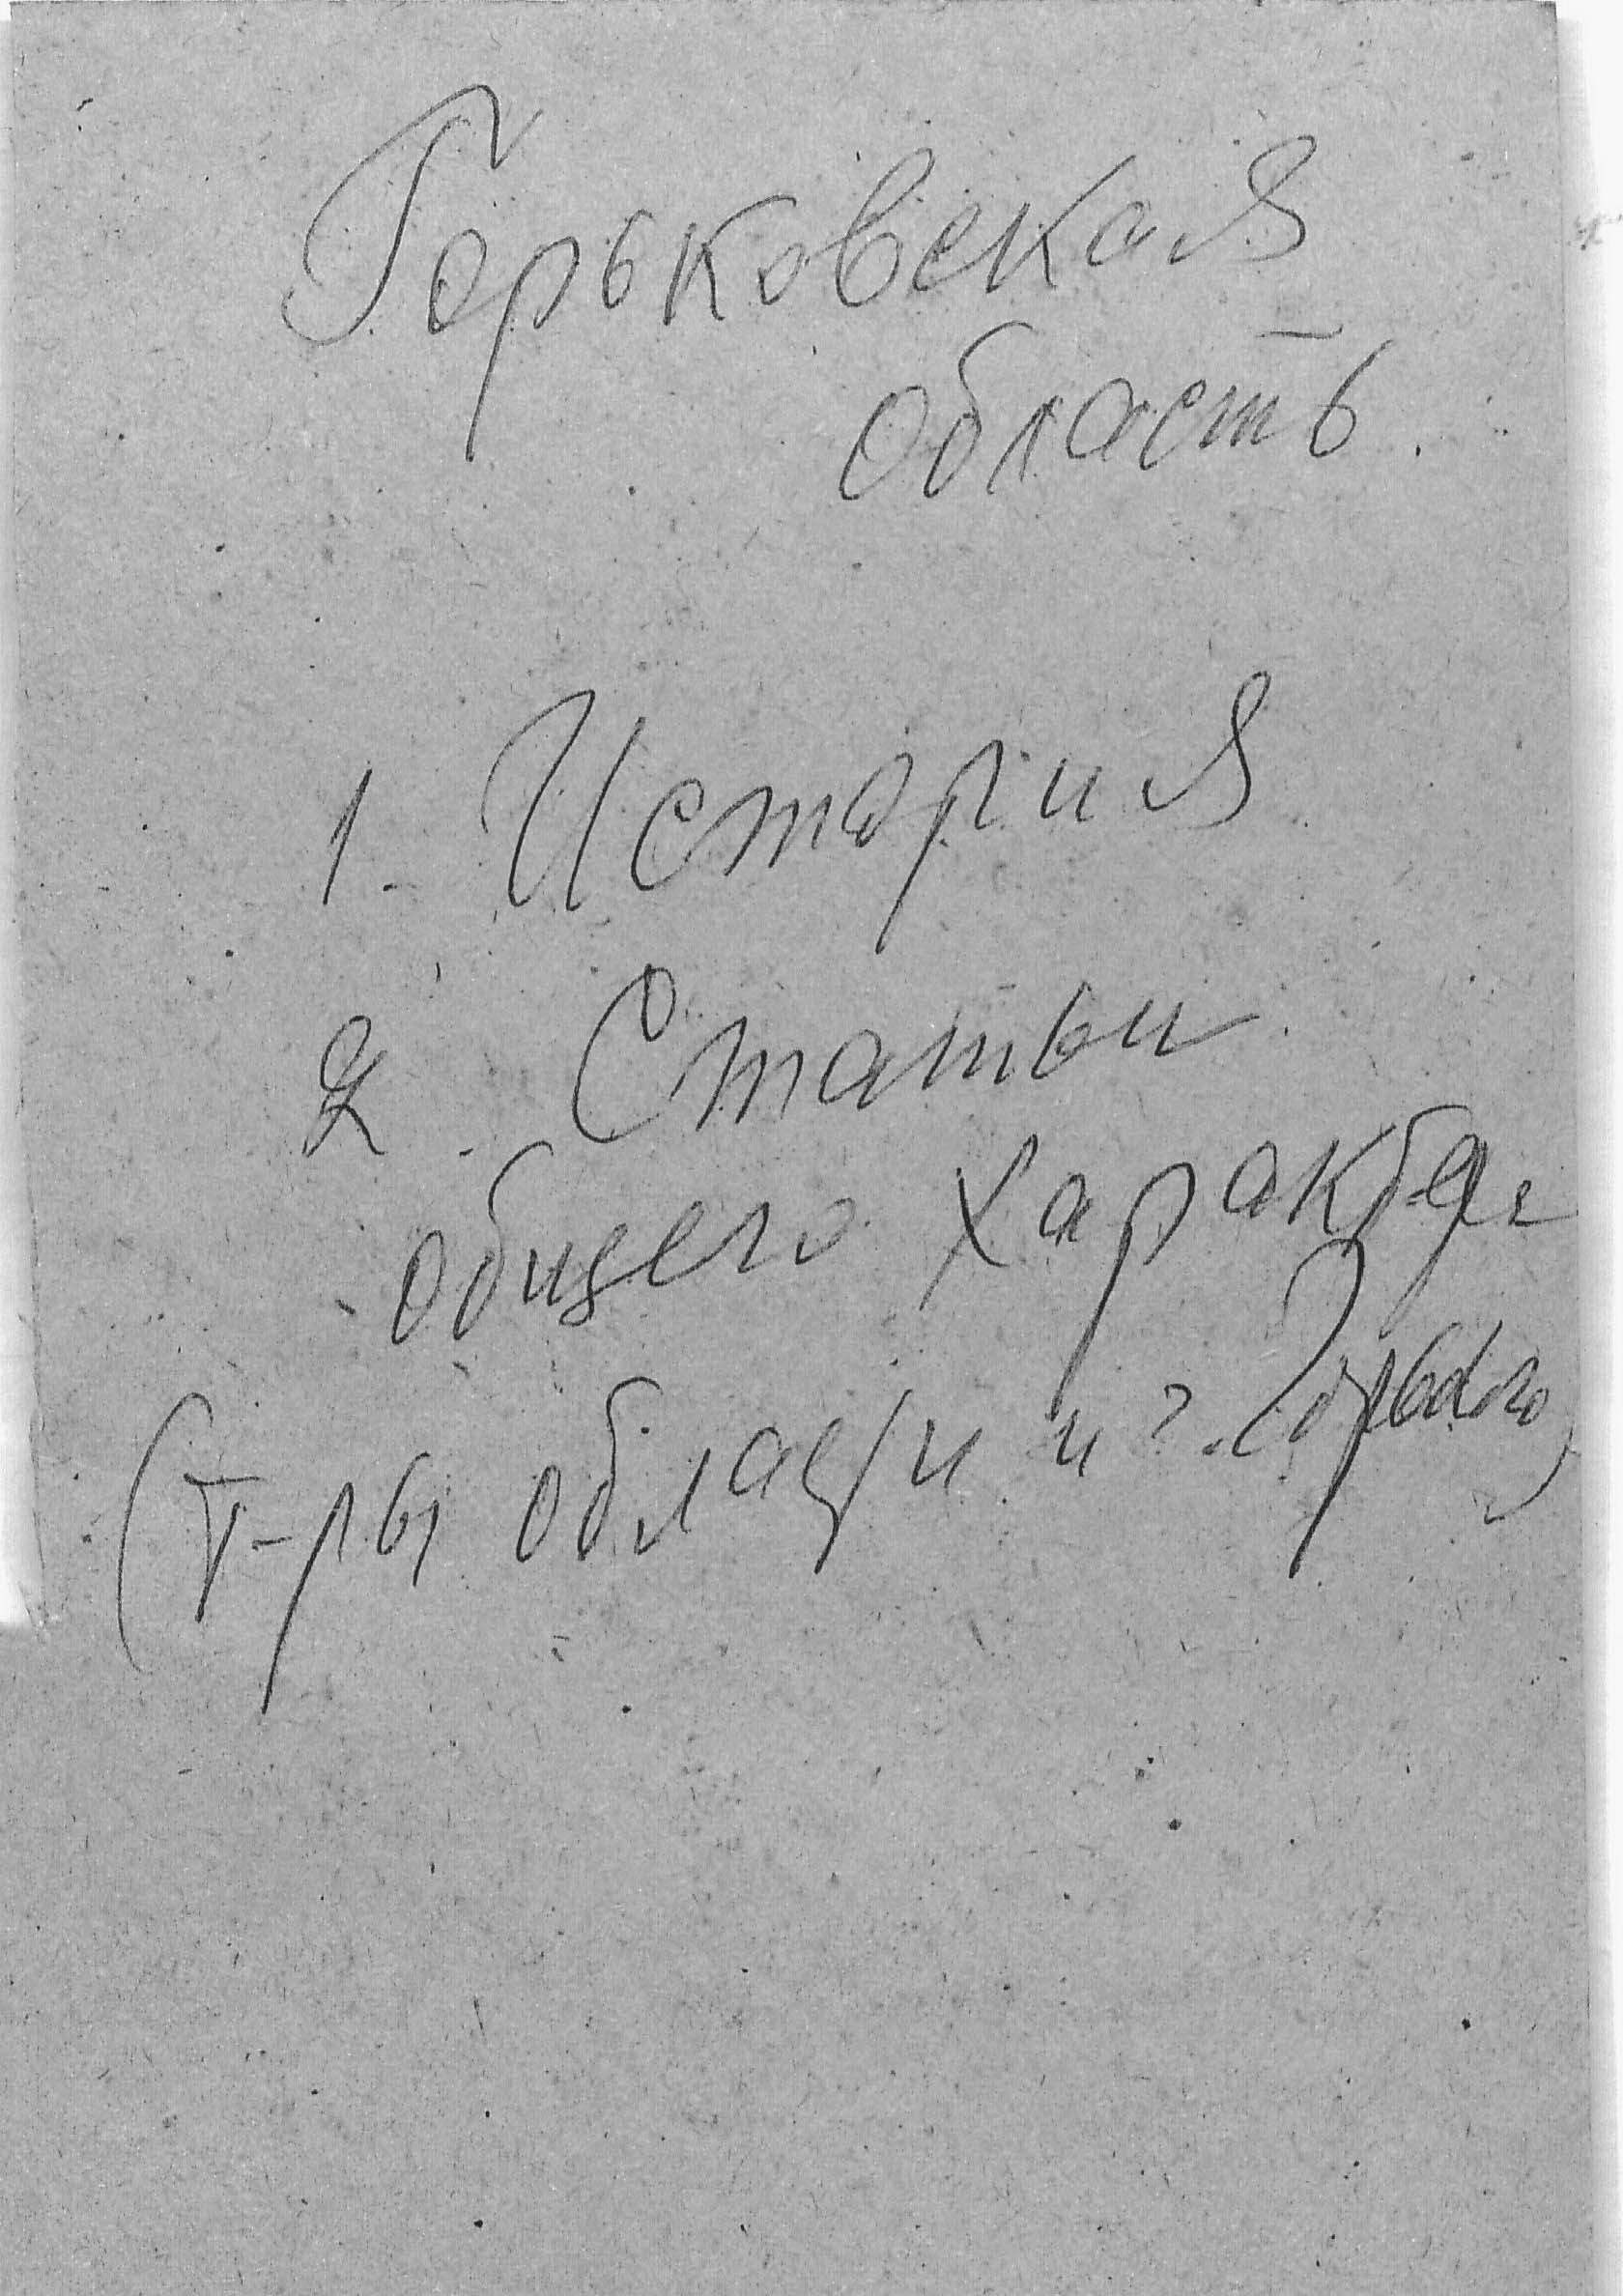 Горьковская
область.
1. История
2. Статьи
общего характера
(т-ры области и г. Горького)